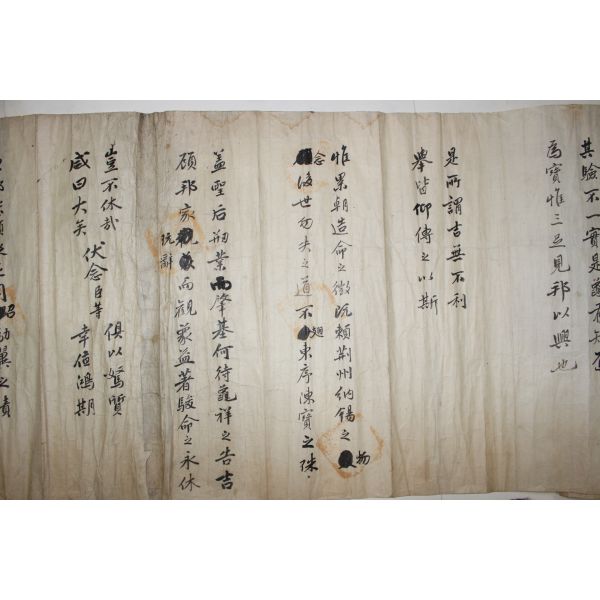 其驗不一實是
爲寶惟三足見邦以興也
是所謂吉無不利
擧皆仰傳之以斯
惟累朝造命之徵既賴荊州納錫之物
念後世勿失之道不廻東序陳寶之殊
盖聖后刱業而肇基何待龜祥之告吉
顧邦家玩辭而觀象益著駿命之永休
豈不休哉
咸曰大矣
伏念臣等
俱以駑質
幸値鴻期
昭
翼之責